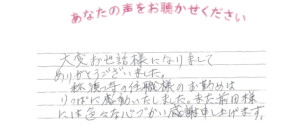 あなたの声をお聴かせください
大変お世話様になりまして
ありがとうございました。
の住職様のお勤めは
りっぱに感動いたしました。また前田様
には色々な心づかい感謝申し上げます。